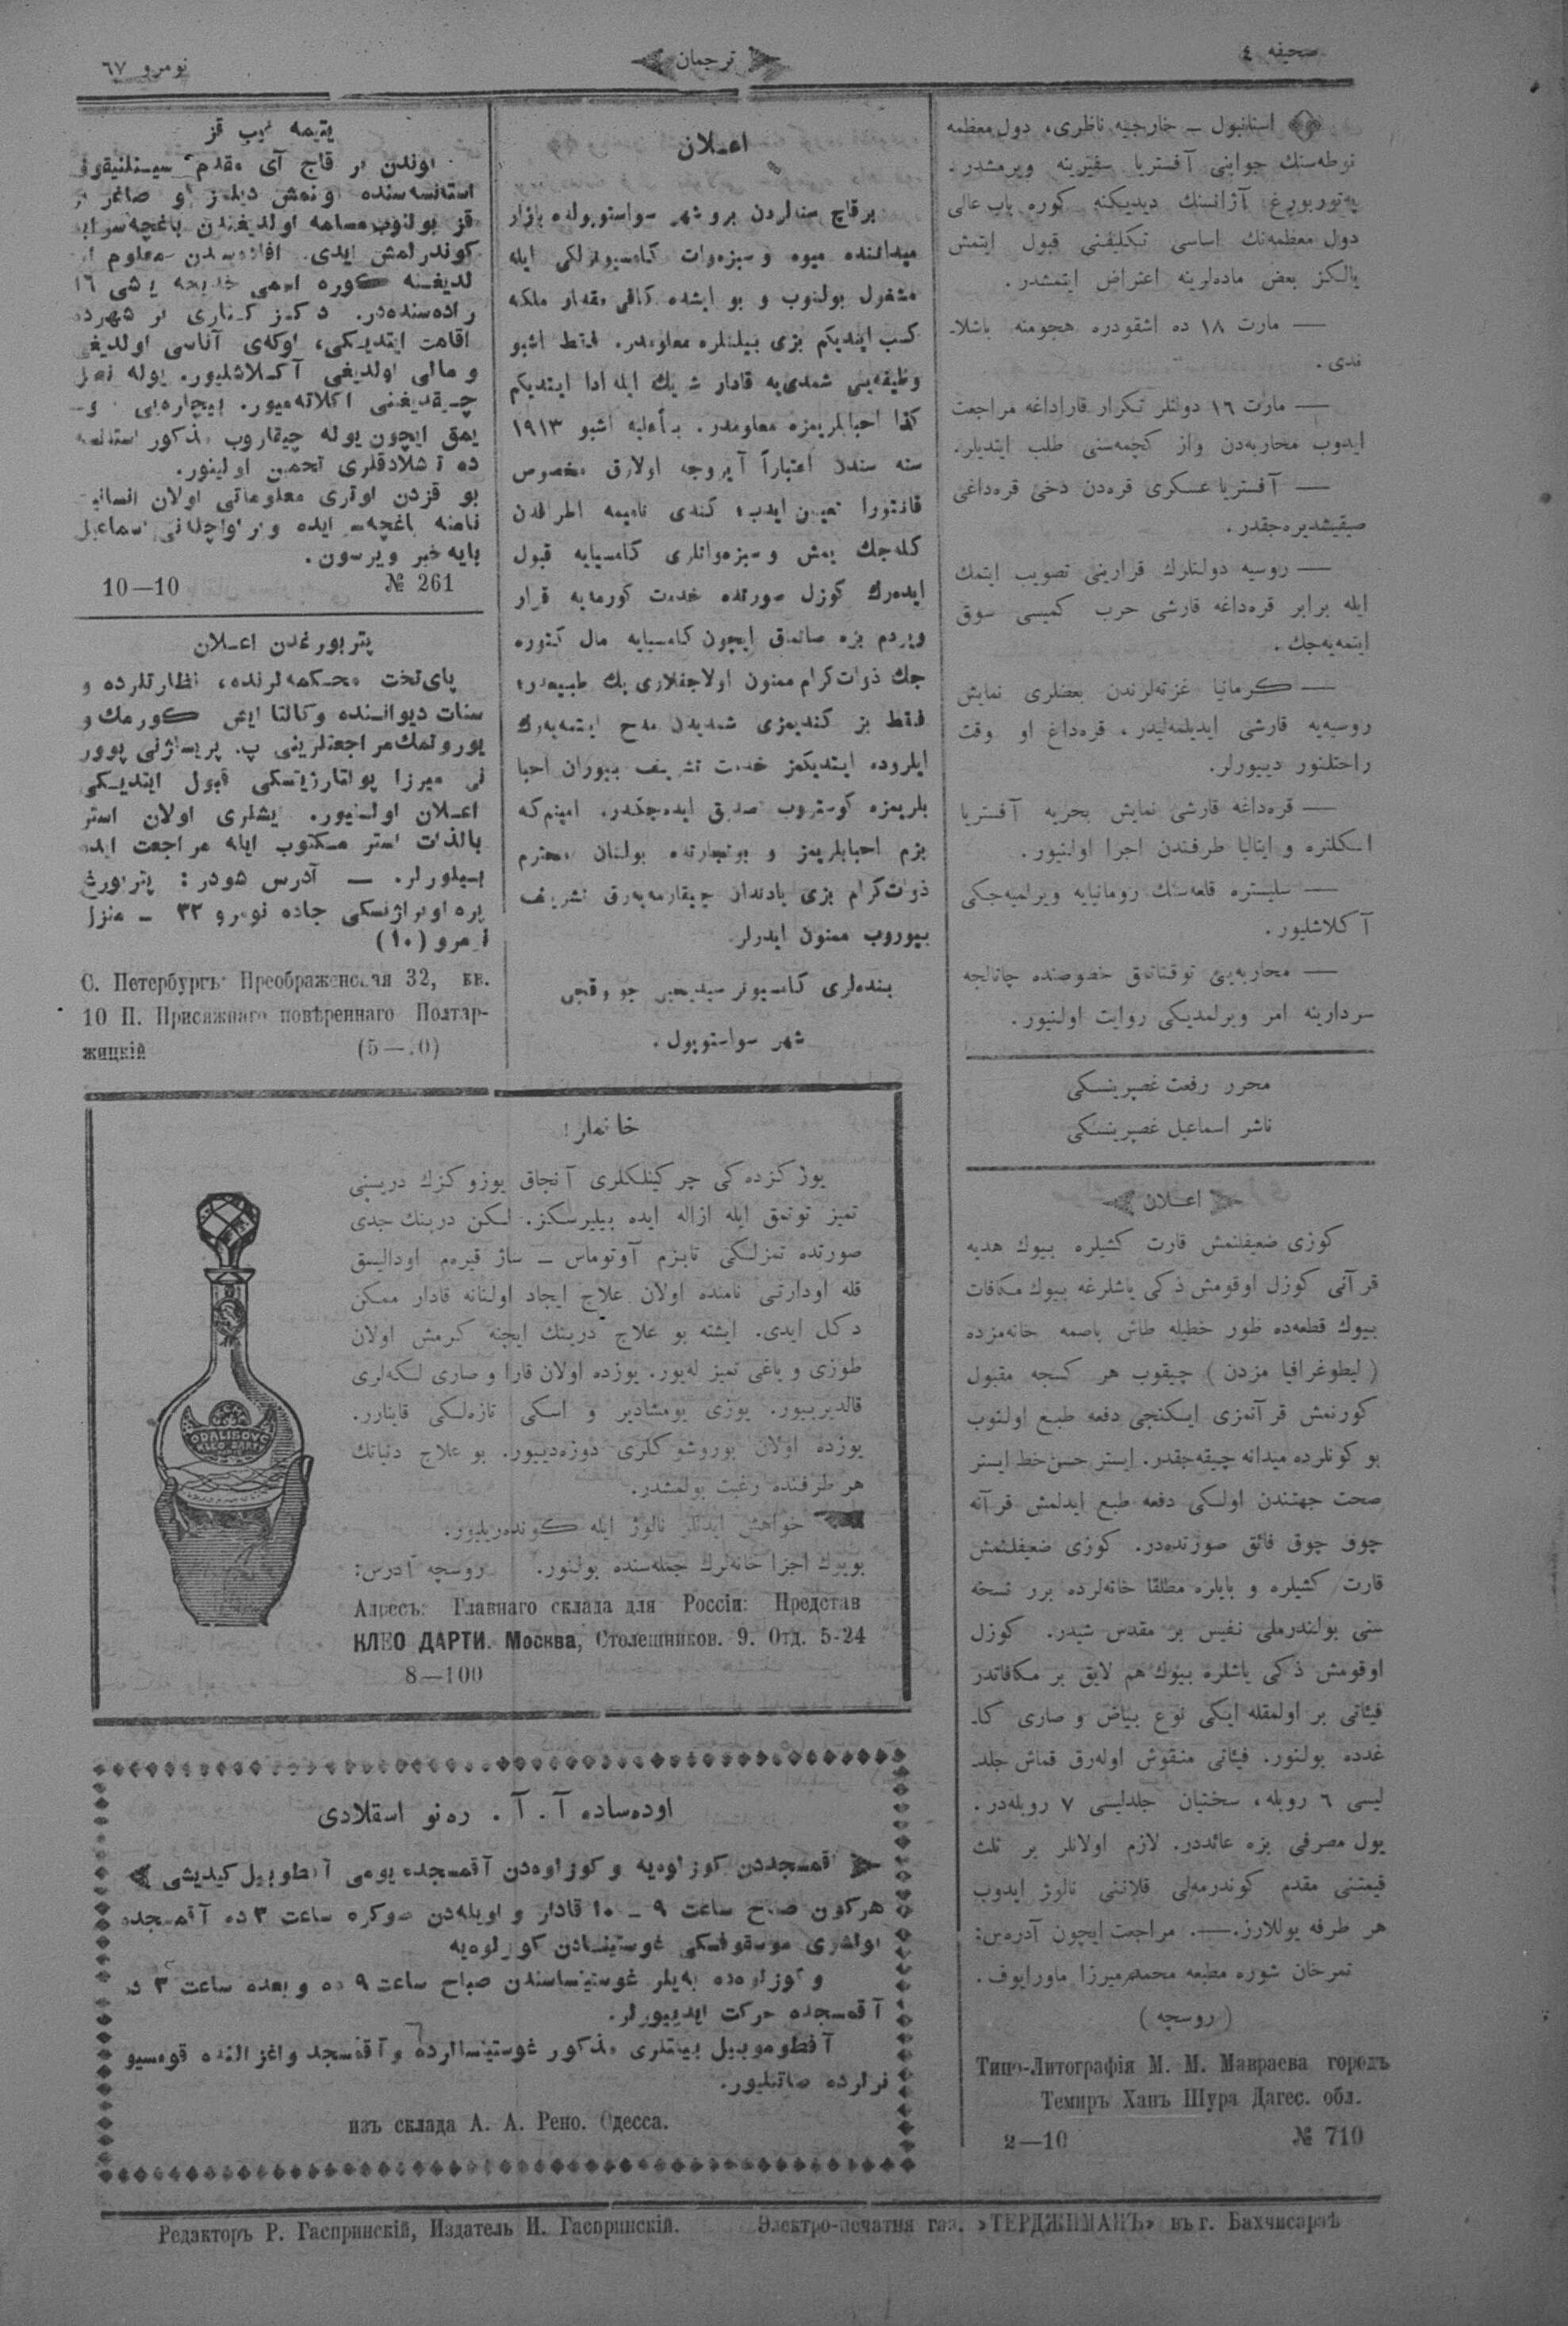 صحيفه ٤
ترجمان
نومرو ٦٧
استانبول ــ خارجيه ناظرى، دول معظمه
نوطه‌سنك جوابنى آفستريا سفيرينه ويرمشدر.
په‌توربورغ آژانسنك ديديكنه كوره باب عالى
دول معظمه‌نك اساسى تكليفنى قبول ايتمش
يالكز بعض ماده‌لرينه اعتراض ايتمشدر.
— مارت ١٨ ده اشقودره هجومنه باشلا-
ندى.
— مارت ١٦ دولتلر تكرار قاراداغه مراجعت
ايدوب محاربه‌دن واز كچمه‌سنى طلب ايتديلر.
— آفستريا عسكرى قره‌دن دخى قره‌داغى
صيقيشديره‌جقدر.
— روسيه دولتلرك قرارينى تصويب ايتمك
ايله برابر قره‌داغه قارشى حرب كميسى سوق
ايتمه‌يه‌جك.
— كرمانيا غزته‌لرندن بعضلرى نمايش
روسيه‌يه قارشى ايديلمه‌ليدر، قره‌داغ او وقت
راحتلنور ديبورلر.
— قره‌داغه قارشى نمايش بحريه آفستريا
انكلتره و ايتاليا طرفندن اجرا اولنيور.
— سليستره قلعه‌سنك رومانيايه ويرلميه‌جكى
آكلاشليور.
— محاربه‌يى توقتاتمق خصوصنده چاتالجه
سردارينه امر ويرلمديكى روايت اولنيور.
محرر رفعت غصپرينسكى
ناشر اسماعيل غصپرينسكى
اعــلان
كوزى ضعيفلنمش قارت كشيلره بيوك هديه
قرآنى كوزل اوقومش ذكى ياشلرغه بيوك مكافات
بيوك قطعه‌ده ظور خطيله طاش باصمه خانه‌مزده
(ليطوغرافيا مزدن) چيقوب هر كسجه مقبول
كورنمش قرآنمزى ايكنجى دفعه طبع اولنوب
بو كونلرده ميدانه چيقه‌جقدر. ايستر حسن خط ايستر
صحت جهتندن اولكى دفعه طبع ايدلمش قرآنه
چوق چوق فائق صورتده‌در. كوزى ضعيفلنمش
قارت كشيلره و بايلره مطلقا خانه‌لرده برر نسخه
سنى بولندرملى نفيس بر مقدس شيدر. كوزل
اوقومش ذكى ياشلره بيوك هم لايق بر مكافاتدر
فيئاتى بر اولمقله ايكى نوع بياض و صارى كا-
غدده بولنور. فيئاتى منقوش اوله‌رق قماش جلد-
ليسى ٦ روبله، سختيان جلدليسى ٧ روبله‌در.
يول مصرفى بزه عائددر. لازم اولانلر بر ثلث
قيمتنى مقدم كوندرمه‌لى قلاننى نالوژ ايدوب
هر طرفه يوللارز.—. مراجعت ايچون آدره‌س:
تمرخان شوره مطبعه محمدميرزا ماورايوف.
(روسچه)
Типо-Литографія М. М. Мавраева городъ
Темиръ Ханъ Шура Дагес. обл.
2—10 № 710
اعــلان
برقاچ سنه‌لردن برو شهر سواستوپولده بازار
ميداننده ميوه و سبزه‌وات كامسيونرلكى ايله
مشغول بولنوب و بو ايشده كافى مقدار ملكه
كسب ايتديكم بزى بيلنلره معلومدر. فقط اشبو
وظيفه‌يى شمدى‌يه قادار شريك ايله ادا ايتديكم
كذا احبابلريمزه معلومدر. بناءعليه اشبو ١٩١٣
سنه سندن اعتباراً آيروجه اولارق مخصوص
قانتورا تعيين ايدب، كندى ناميمه اطرافدن
كله‌جك يمش و سبزه‌واتلرى كامسيايه قبول
ايده‌رك كوزل صورتده خدمت كورمه‌يه قرار
ويردم بزه صاتماق ايچون كامسيايه مال كتوره
جك ذوات كرام ممنون اولاجقلارى پك طبيعيدر؛
فقط بز كنديمزى شمديدن مدح ايتمه‌يه‌رك
ايلروده ايتديكمز خدمت تشريف بيوران احبا
بلريمزه كوستروب تصديق ايده‌جكدر. امينم كه
بزم احبابلريمز و بو تجارتده بولنان محترم
ذوات كرام بزى يادندان چيقارمه‌يه‌رق تشريف
بيوروب ممنون ايدرلر.
بنده‌لرى كامسيونر سيديحيى جووقجى
شهر سواستوپول.
يتيمه غريب قز
بوندن بر قاچ آى مقدم سينلنيقوف
كوندرلمش ايدى. افاده‌سندن معلوم او-
لديغنه كوره اسمى خديجه ياشى ١٦
راده‌سنده‌در. دكز كنارى بر شهرده
اقامت ايتديكى، اوكه‌ى آناسى اولديغى
و مالى اولديغى آكلاشليور. يوله نصل
چيقديغنى اكلاته‌ميور.
يمق ايچون يوله چيقاروب مذكور استانسه
ده تاشلادقلرى تخمين اولينور.
بو قزدن اوترى معلوماتى اولان انسانيت
نامنه باغچه‌سرايده اسماعيل
بايه خبر ويرسون.
№ 261 10—10
پتربورغدن اعــلان
پاى‌تخت محكمه‌لرنده، نظارتلرده و
سنات ديواننده وكالتا ايش كورمك و
يوروتمك مراجعتلرينى پ. پريساژنى پوور
نى ميرزا پولتارزيتسكى قبول ايتديكى
اعــلان اولنيور. ايشلرى اولان استر
بالذات استر مكتوب ايله مراجعت ايده
بيلورلر. — آدرس شودر: پتربورغ
پره‌اوبراژنسكى جاده نومرو ٣٢ ــ منزل
نومرو (١٠)
С. Петербургъ Преображенская 32, кв.
10 П. Присяжнаго повѣреннаго Полтар-
жицкій (5—10)
خانملر!
يوزكزده‌كى چركينلكلرى آنجاق يوزوكزك دريسنى
تميز توتمق ايله ازاله ايده بيليرسكز. لكن درينك جدى
صورتده تمزلكى تابزم آوتوماس ــ ساژ قيره‌م اوداليسق
قله اودارتى نامنده اولان علاج ايجاد اولنانه قادار ممكن
دكل ايدى. ايشته بو علاج درينك ايچنه كرمش اولان
طوزى و ياغى تميزله‌يور. يوزده اولان قارا و صارى لكه‌لرى
قالديرييور. يوزى يومشادير و اسكى تازه‌لكى قايتارر.
يوزده اولان بوروشوكلرى دوزه‌دييور. بو علاج دنيانك
هر طرفنده رغبت بولمشدر.
خواهش ايدنلر نالوژ ايله كونده‌ريليور.
بويوك اجزا خانه‌لرك جمله‌سنده بولنور. روسچه آدرس:
Адресъ: Главнаго склада для Россіи: Представ
КЛЕО ДАРТИ. Москва, Столешников. 9. Отд. 5-24
8—100
ODALISQVE
KLEO DARTY
اوده‌ساده آ. آ. ره‌نو اسقلادى
اقمسجددن كوزلوه‌يه و كوزلوه‌دن آقمسجده يومى آفطوموبيل كيديشى
هركون صباح ساعت ٩ ــ ١٠ قادار و اويله‌دن صوكره ساعت ٣ ده آقمسجده
بولشوى موسقوفسكى غوستينسادن كوزلوه‌يه
و كوزلوه‌ده به‌يلر غوستينساسندن صباح ساعت ٩ ده و بعده ساعت ٣ ده
آقمسجده حركت ايدييورلر.
آفطوموبيل بيلتلرى مذكور غوستينسالرده و آقمسجد واغزالنده قومسيو
نرلرده صاتيليور.
изъ склада А. А. Рено. Одесса.
Редакторъ Р. Гаспринскій, Издатель И. Гаспринскій. Электро-печатня газ. «ТЕРДЖИМАНЪ» въ г. Бахчисараѣ